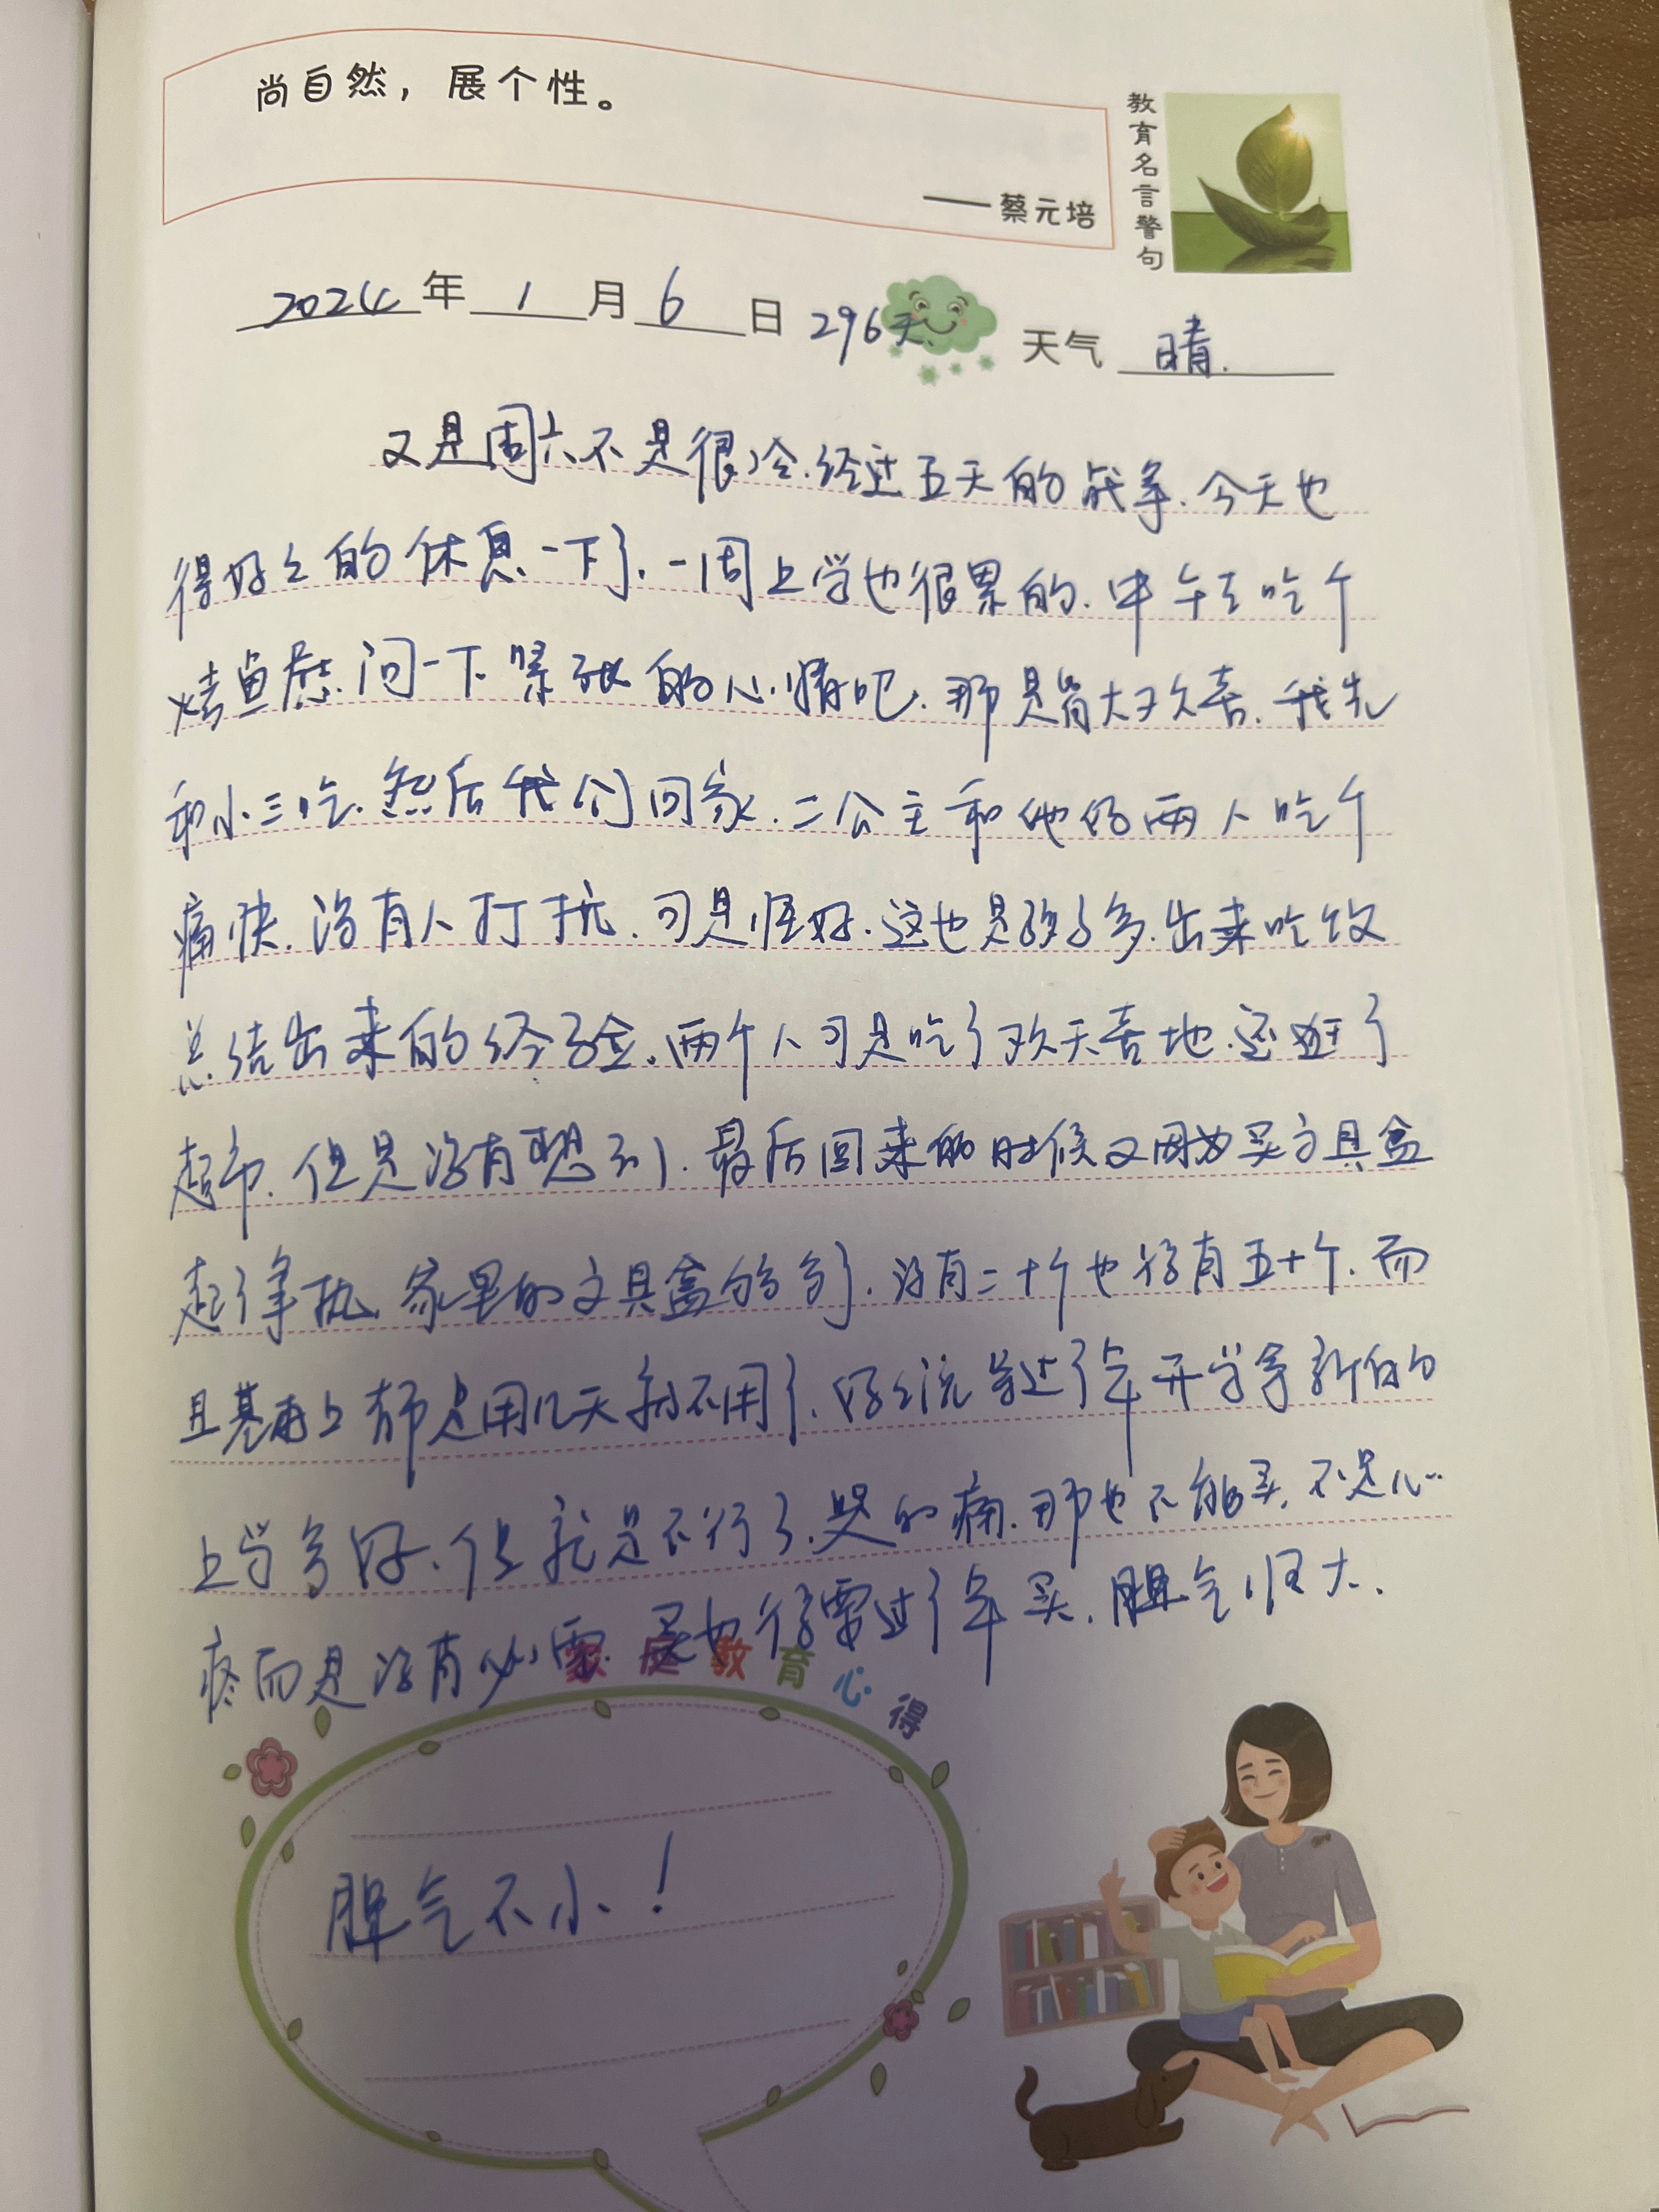 尚自然，展个性。
——蔡元培
教育名言警句
2024年1月6日 296天 天气 晴.
又是周六不是很冷.经过五天的战争.今天也
得好々的休息一下了.一周上学也很累的.中午去吃个
烤鱼慰问一下紧张的心情吧.那是皆大欢喜.我先
和小三吃.然后我们回家.二公主和他妈两人吃个
痛快.没有人打扰.可是怪好.这也是多次出来吃饭
总结出来的经验.两个人可是吃了欢天喜地.还逛了
超市.但是没有想到.最后回来的时候又因为买文具盒
起了争执.家里的文具盒的多了.没有二十个也得有五十个.而
且基本上都是用几天就不用了.好々说等过了年开学拿新的
上学多好.但就是不行了.哭的痛.那也不能买.不是心
疼而是没有必要.买也得需要过了年买.脾气怪大.
家庭教育心得
脾气不小！